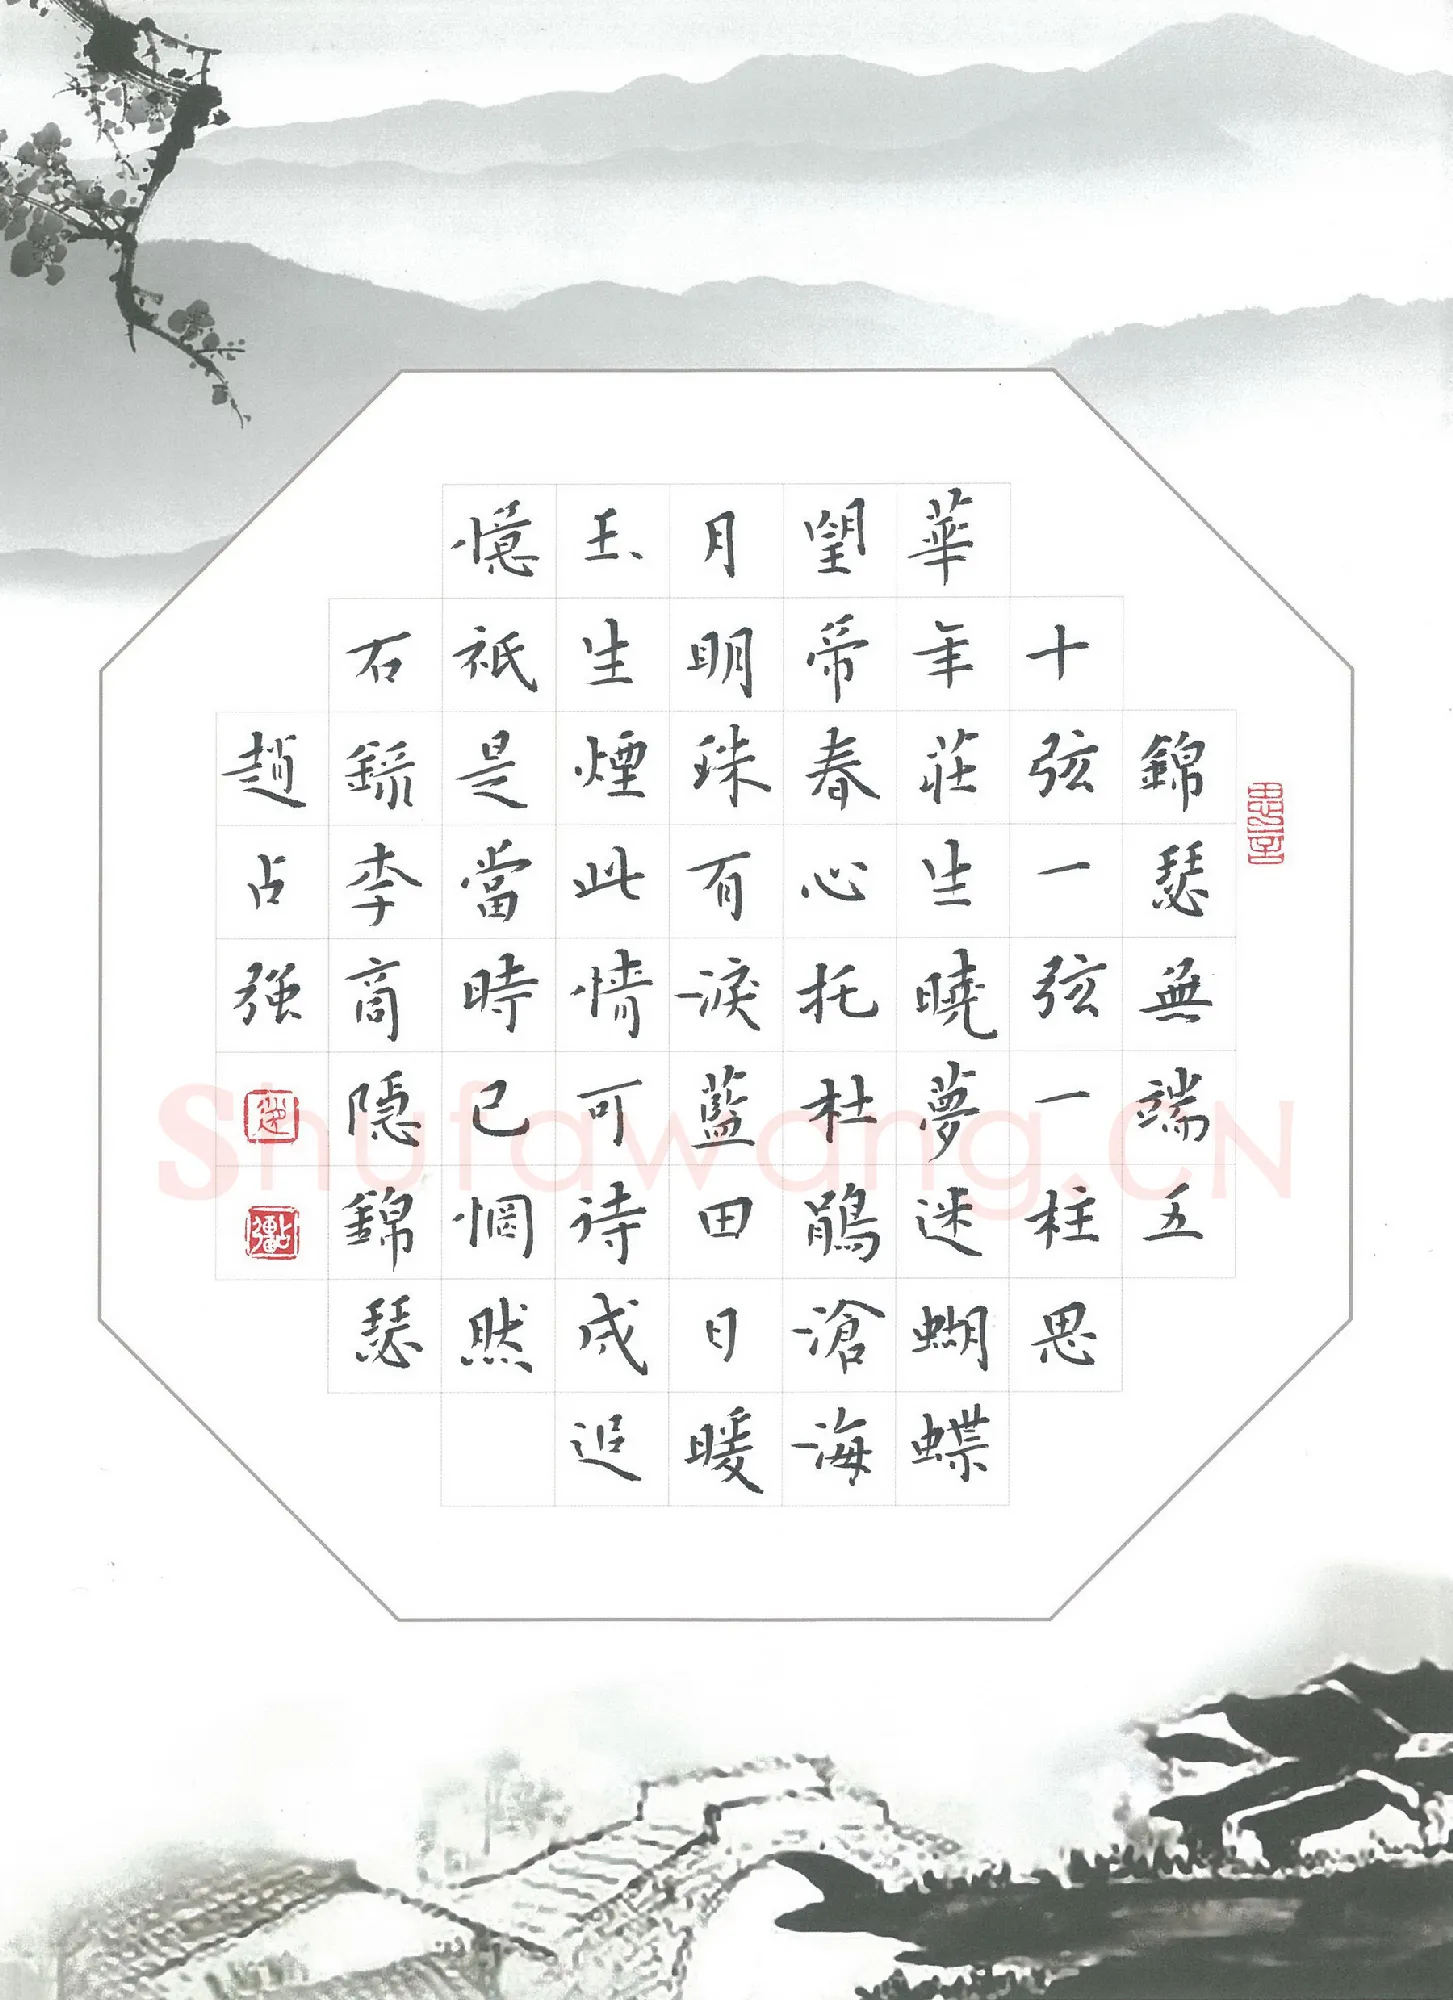 錦瑟無端五
十弦一弦一柱思
華年莊生曉夢迷蝴蝶
望帝春心托杜鵑滄海
月明珠有淚藍田日暖
玉生煙此情可待成追
憶祇是當時已惘然
右録李商隐錦瑟
趙占强
Shufawang.CN